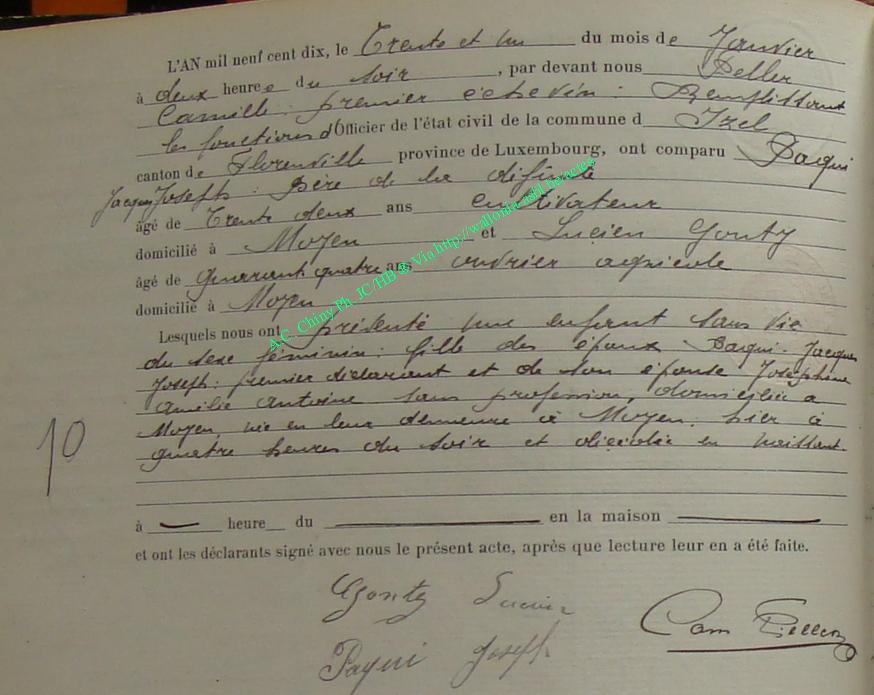 L'AN mil neuf cent dix, le Trente et un du mois de Janvier
à deux heures du soir, par devant nous Peller
Camille: premier échevin: Remplissant
les fonctions d'Officier de l'état civil de la commune d Izel
canton de Florenville province de Luxembourg, ont comparu Paqui
Jacques Joseph: Père de la défunte
âgé de Trente deux ans cultivateur
domicilié à Moyen et Lucien Gouty
âgé de quarant quatre ans ouvrier agricole
domicilié à Moyen
Lesquels nous ont présenté une enfant sans vie
du sexe féminin: fille des époux Paqui-Jacques
Joseph: premier déclarant et de son épouse Joséphine
Amélie Antoine sans profession, domiciliée a
Moyen née en leur demeure à Moyen: hier à
quatre heures du soir et décédée en naissant.
10
à heure du en la maison
et ont les déclarants signé avec nous le présent acte, après que lecture leur en a été faite.
Gouty Lucien
Paqui Joseph
Cam Peller
A.C. Chiny Ph. JC/HB @ Via http://wallonia-asbl.be/actes